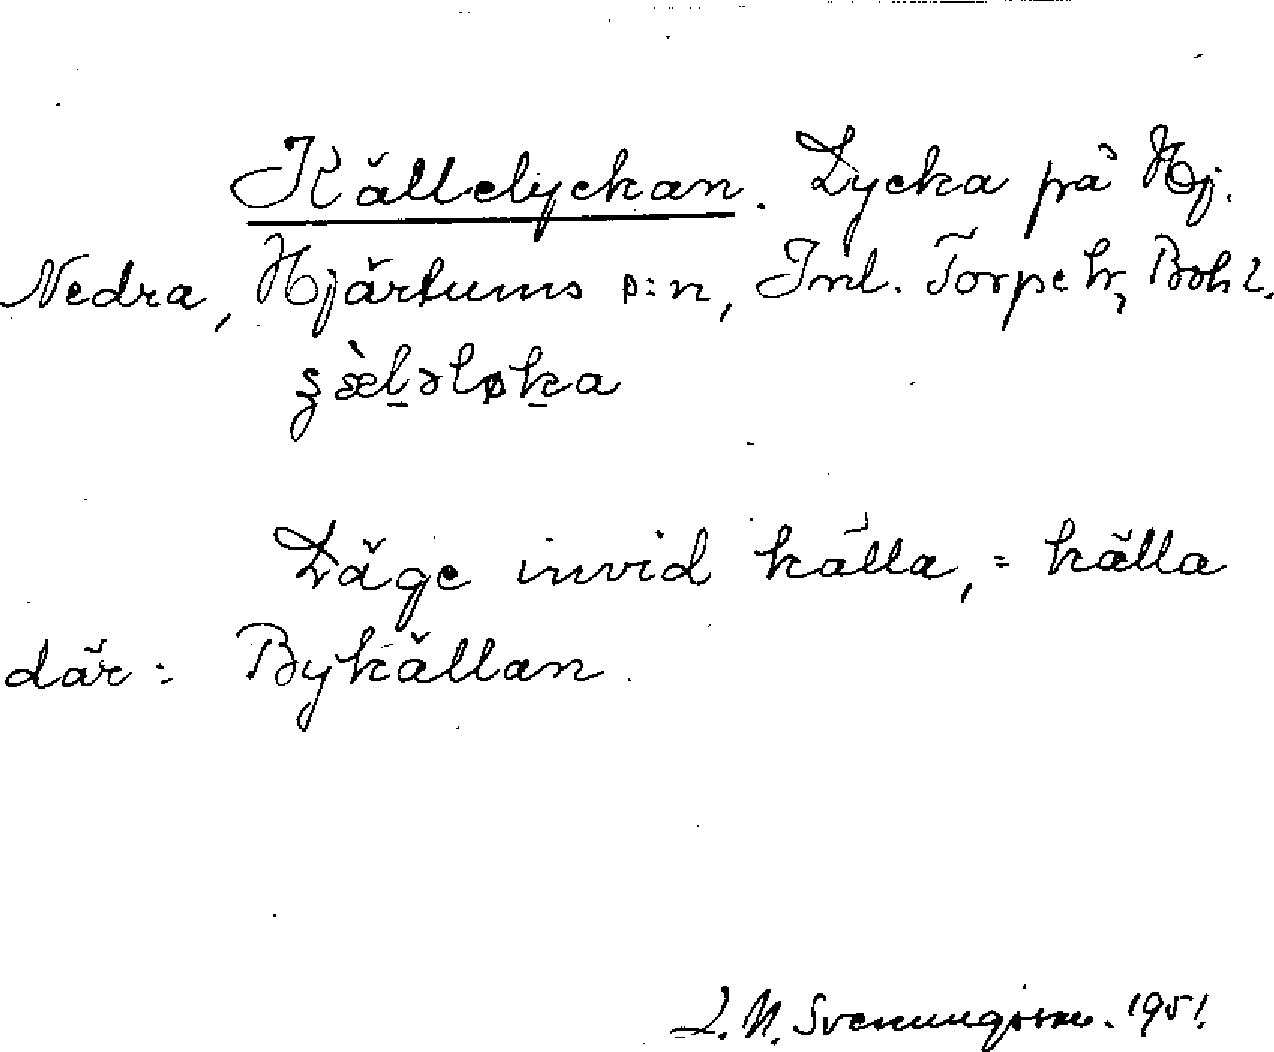 Källelyckan. Lycka på Hj.
Nedra, Hjärtums s:n, Inl. Torpe hr, Bohl.
Läge invid källa, = källa
där = Bykällan.
L. N. Svenungsson. 1951.